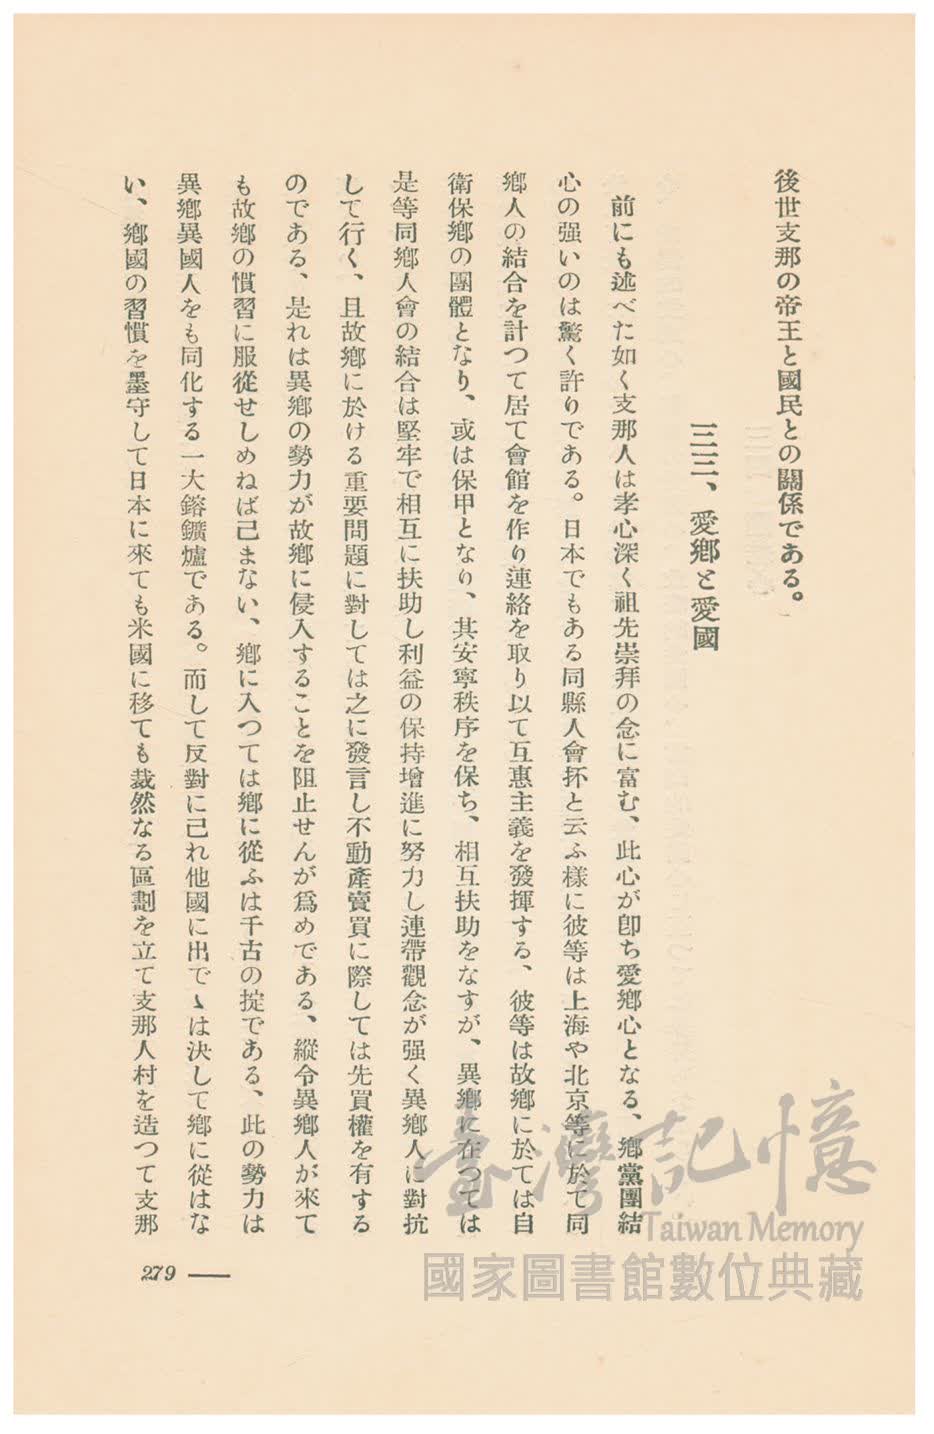 後世支那の帝王と國民との關係である。
三三、愛鄕と愛國
前にも述べた如く支那人は孝心深く祖先崇拜の念に富む、此心が卽ち愛鄕心となる、鄕黨團結
心の强いのは驚く許りである。日本でもある同縣人會抔と云ふ樣に彼等は上海や北京等に於て同
鄕人の結合を計つて居て會館を作り連絡を取り以て互惠主義を發揮する、彼等は故鄕に於ては自
衛保鄕の團體となり、或は保甲となり、其安寧秩序を保ち、相互扶助をなすが、異鄕に在つては
是等同鄕人會の結合は堅牢で相互に扶助し利益の保持增進に努力し連帶觀念が强く異鄕人に對抗
して行く、且故鄕に於ける重要問題に對しては之に發言し不動產賣買に際しては先買權を有する
のである、是れは異鄕の勢力が故鄕に侵入することを阻止せんが爲めである、縱令異鄕人が來て
も故鄕の慣習に服從せしめねば已まない、鄕に入つては鄕に從ふは千古の掟である、此の勢力は
異鄕異國人をも同化する一大鎔鑛爐である。而して反對に己れ他國に出でゝは決して鄕に從はな
い、鄕國の習慣を墨守して日本に來ても米國に移ても裁然なる區劃を立て支那人村を造つて支那
279
臺灣記憶
Taiwan Memory
國家圖書館數位典藏